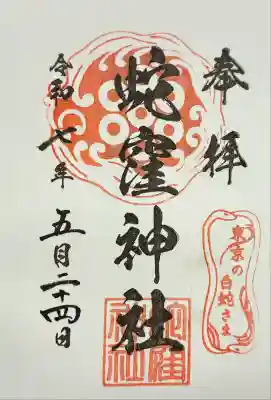 奉拝
東京の
白蛇さま
蛇窪神社
蛇窪
神社
令和七年
五月二十四日